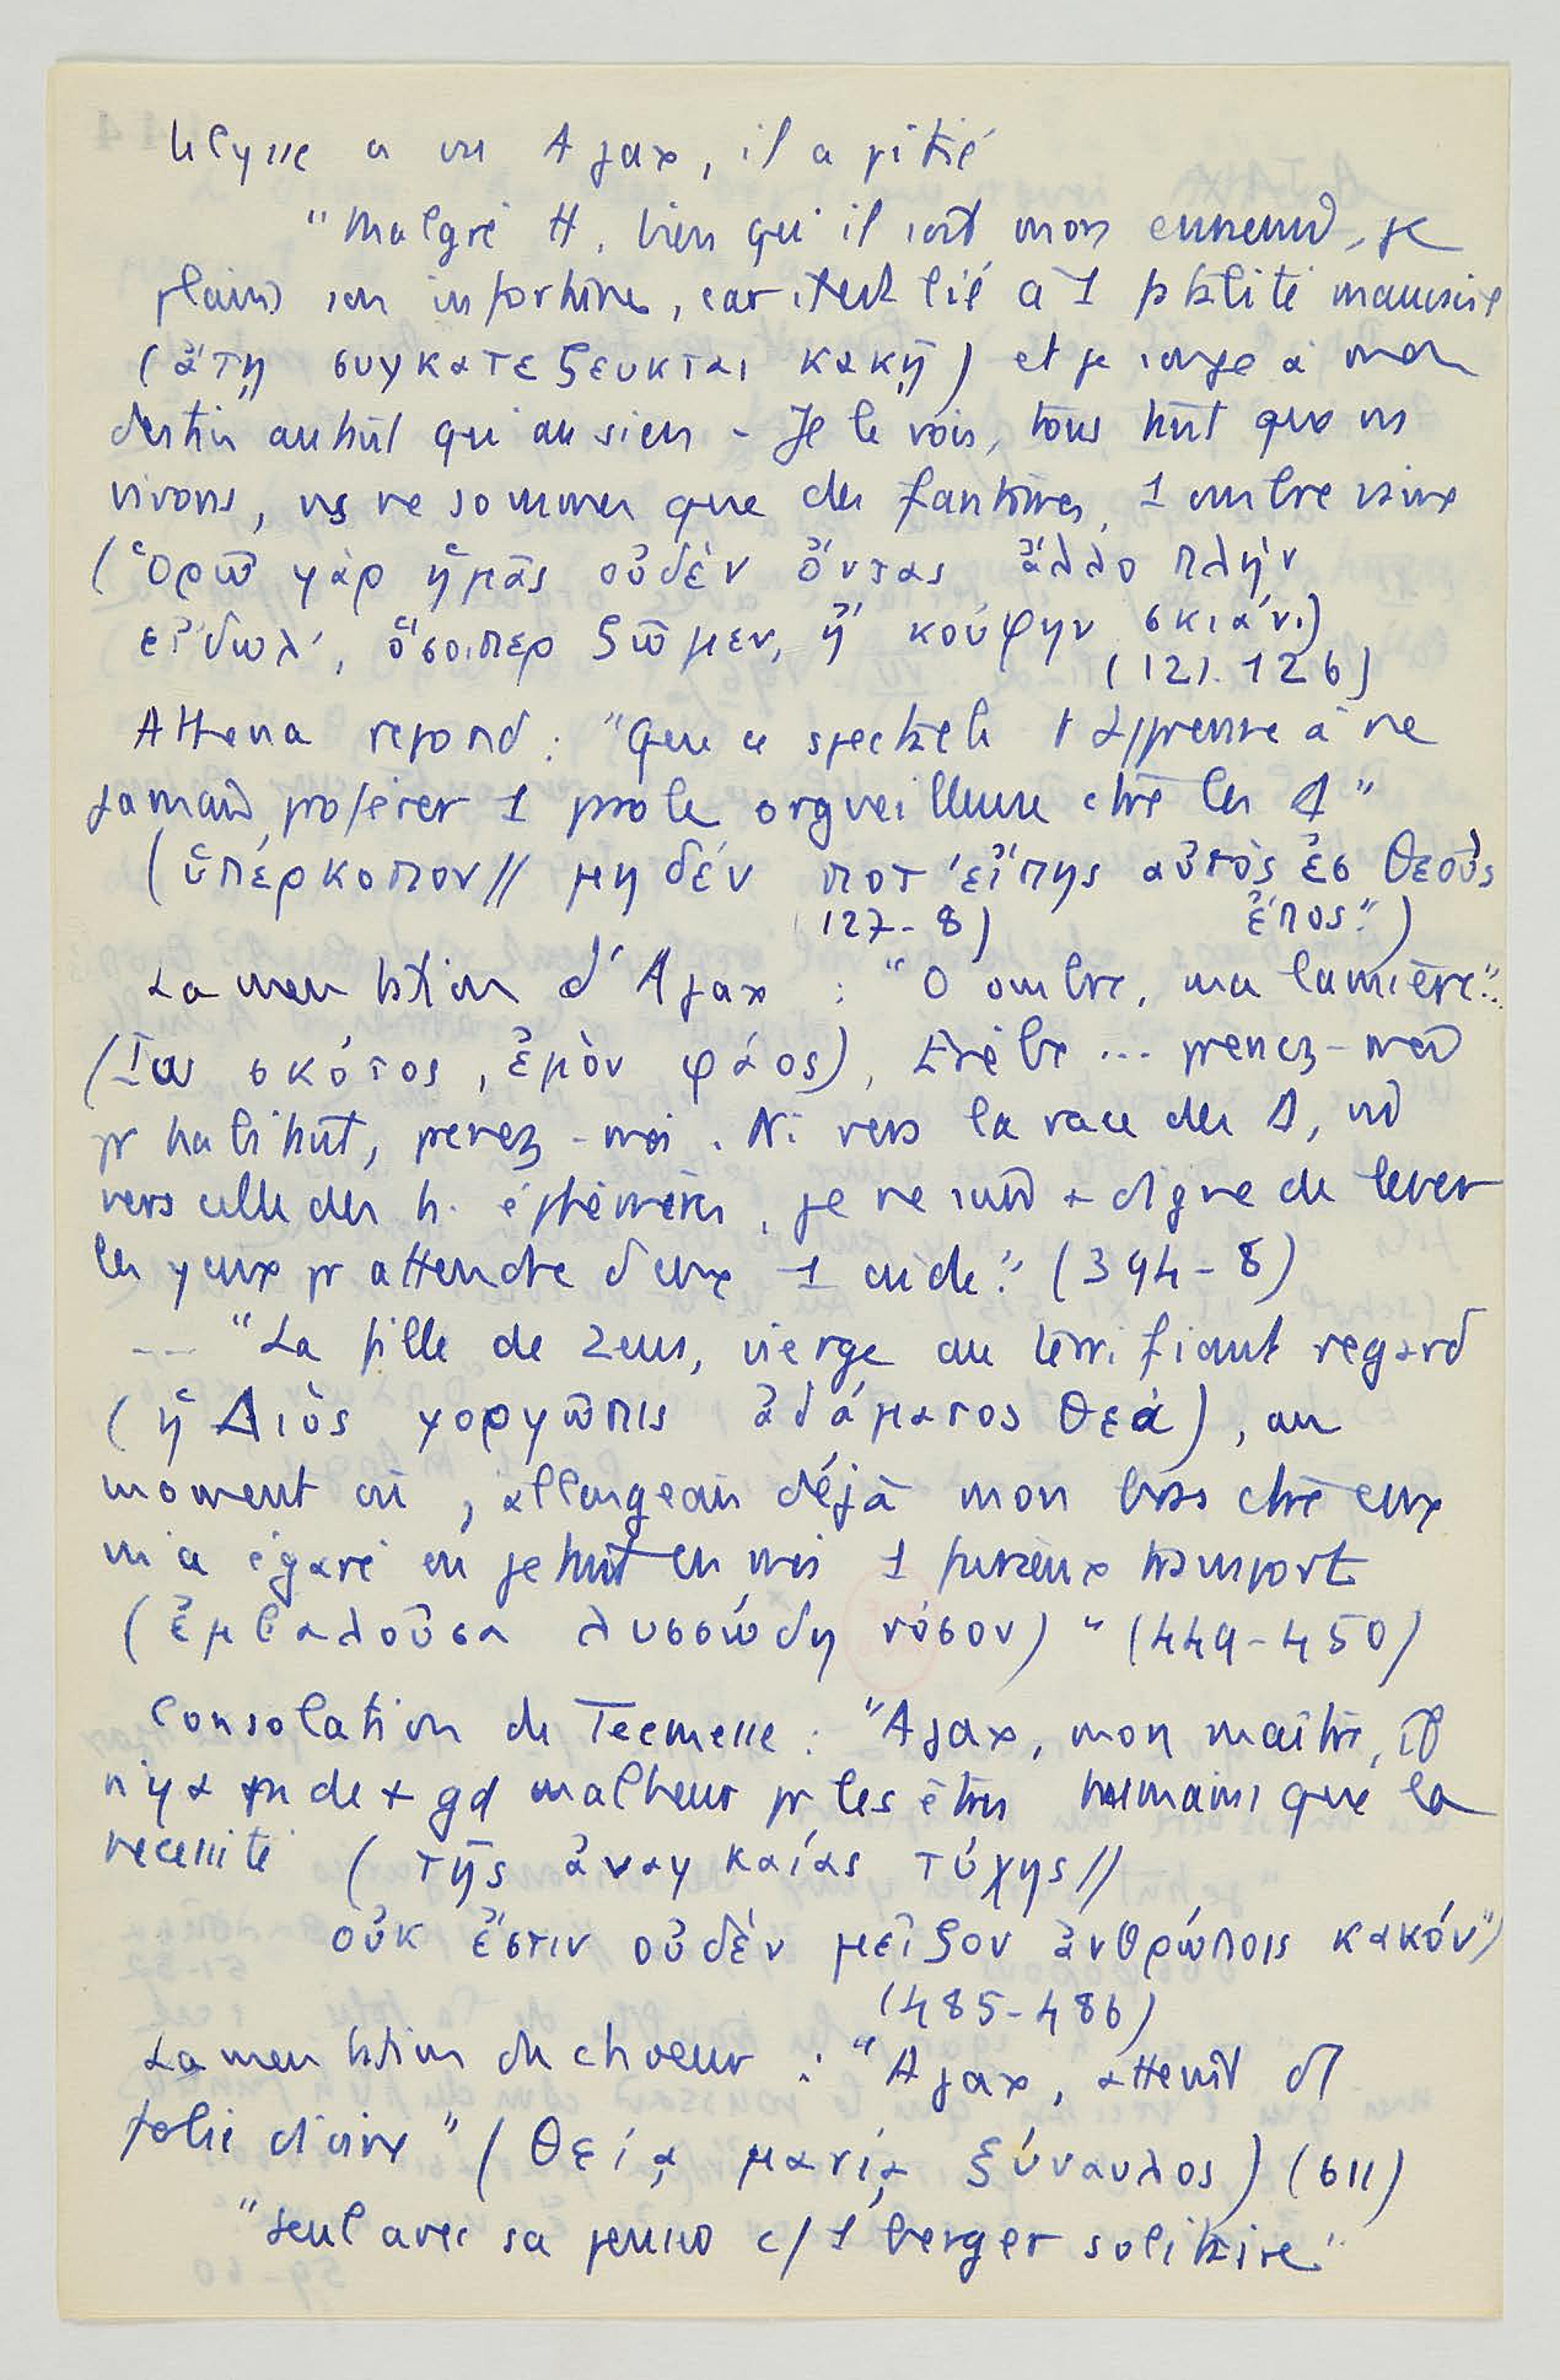 Ulysse a vu Ajax, il a pitié
"Malgré H, bien qu'il soit mon ennemi, je
plains son infortune, car il est lié à 1 fatalité mauvaise
(ἄτῃ συγκατέζευκται κακῇ) et je songe à mon
destin autant qu'au sien - Je le vois, tous tant que ns
vivons, ns ne sommes que des fantômes, 1 ombre vaine
(Ὁρῶ γὰρ ἡμᾶς οὐδὲν ὄντας ἄλλο πλὴν
εἴδωλ', ὅσοιπερ ζῶμεν, ἢ κούφην σκιάν.)
(121.126)
Athena repond : "Que ce spectacle t'apprenne à ne
jamais proférer 1 parole orgueilleuse ctre les Δ"
(ὑπέρκοπον // μηδέν ποτ' εἴπῃς αὐτὸς ἐς θεοὺς
127-8) ἔπος")
Lamentation d'Ajax : "O ombre, ma lumière"..
(Ἰὼ σκότος, ἐμὸν φάος), Erèbe ... prenez-moi
pr habitant, prenez-moi. Ni vers la race des Δ, ni
vers celle des h. éphémères, je ne suis + digne de lever
les yeux pr attendre d'eux 1 aide." (394-8)
--- "La fille de Zeus, vierge au terrifiant regard
(ἡ Διὸς γοργῶπις ἀδάματος θεὰ), au
moment où, allongeais déjà mon bras ctre eux
m'a égaré en jetant en moi 1 furieux transport
(ἐμβαλοῦσα λυσσώδη νόσον) " (449-450)
Consolation de Tecmesse : "Ajax, mon maître, il
n'y a de + gd malheur pr les êtres humains que la
necessité (τῆς ἀναγκαίας τύχης //
οὐκ ἔστιν οὐδὲν μεῖζον ἀνθρώποις κακόν")
(485-486)
Lamentation du choeur : "Ajax, atteint d
folie divine" (θείᾳ μανίᾳ ξύναυλος) (611)
"seul avec sa pensée c/ 1 berger solitaire."